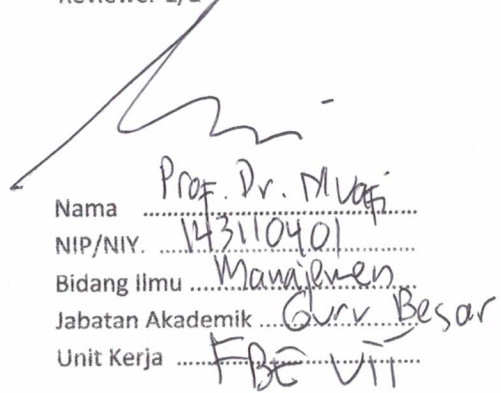 Nama Prof. Dr. Muafi
NIP/NIY. 143110401
Bidang Ilmu Manajemen
Jabatan Akademik Guru Besar
Unit Kerja FBE UII